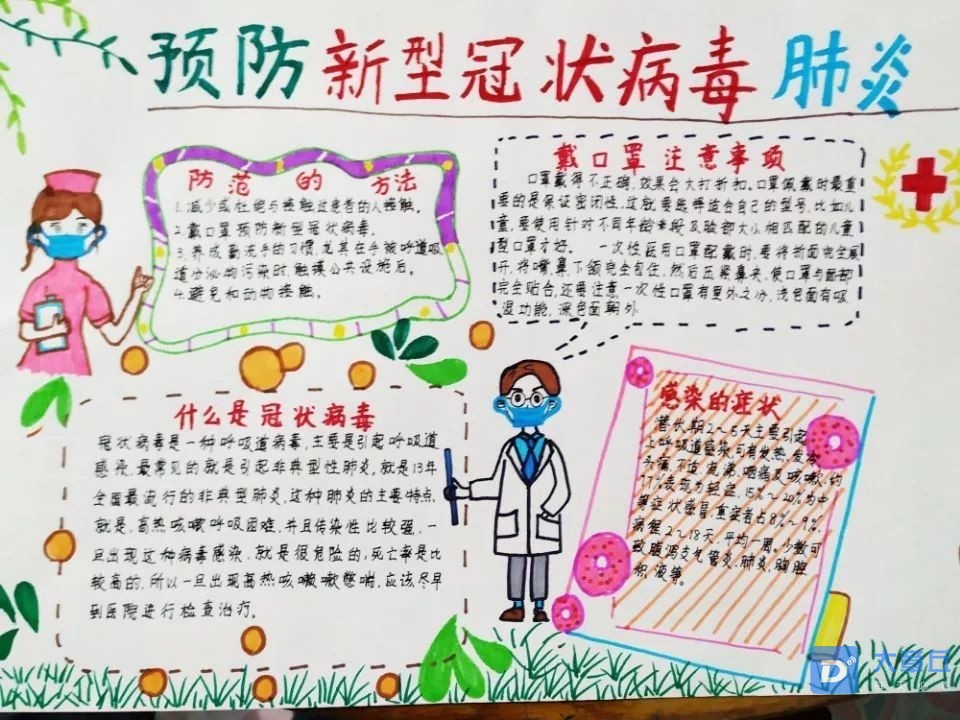 预防新型冠状病毒肺炎
防范的方法
1.减少或杜绝与接触过患者的人接触。
2.戴口罩预防新型冠状病毒。
3.养成勤洗手的习惯,尤其在手被呼道吸
道分泌物污染时,触摸公共设施后。
4.避免和动物接触。
戴口罩注意事项
口罩戴得不正确,效果会大打折扣。口罩佩戴时最重
要的是保证密闭性,这就要选择适合自己的型号,比如儿
童,要使用针对不同年龄身段及脸部大小相匹配的儿童
型口罩才好。一次性医用口罩配戴时,要将折面完全展
开,将嘴、鼻、下颌完全包住,然后压紧鼻夹,使口罩与面部
完全贴合,还要注意一次性口罩有里外之分,浅色面有吸
湿功能,深色面朝外
什么是冠状病毒
冠状病毒是一种呼吸道病毒,主要是引起呼吸道
感染,最常见的就是引起非典型性肺炎,就是13年
全国最流行的非典型肺炎,这种肺炎的主要特点,
就是,高热咳嗽呼吸困难,并且传染性比较强,一
旦出现这种病毒感染,就是很危险的,死亡率是比
较高的,所以一旦出现高热咳嗽嗽憋喘,应该尽早
到医院进行检查治疗。
感染的症状
潜伏期2~5天主要引起
上呼吸道感染,可有发热,发冷
头痛,不适,流涕,咽痛及咳嗽,约
77%表现为轻症,15%~20%为中
等症状感冒,重症者占8%~9%,
病程2~18天,平均一周。少数可
致腹泻支气管炎,肺炎,胸腔
积液等。
大鱼豆